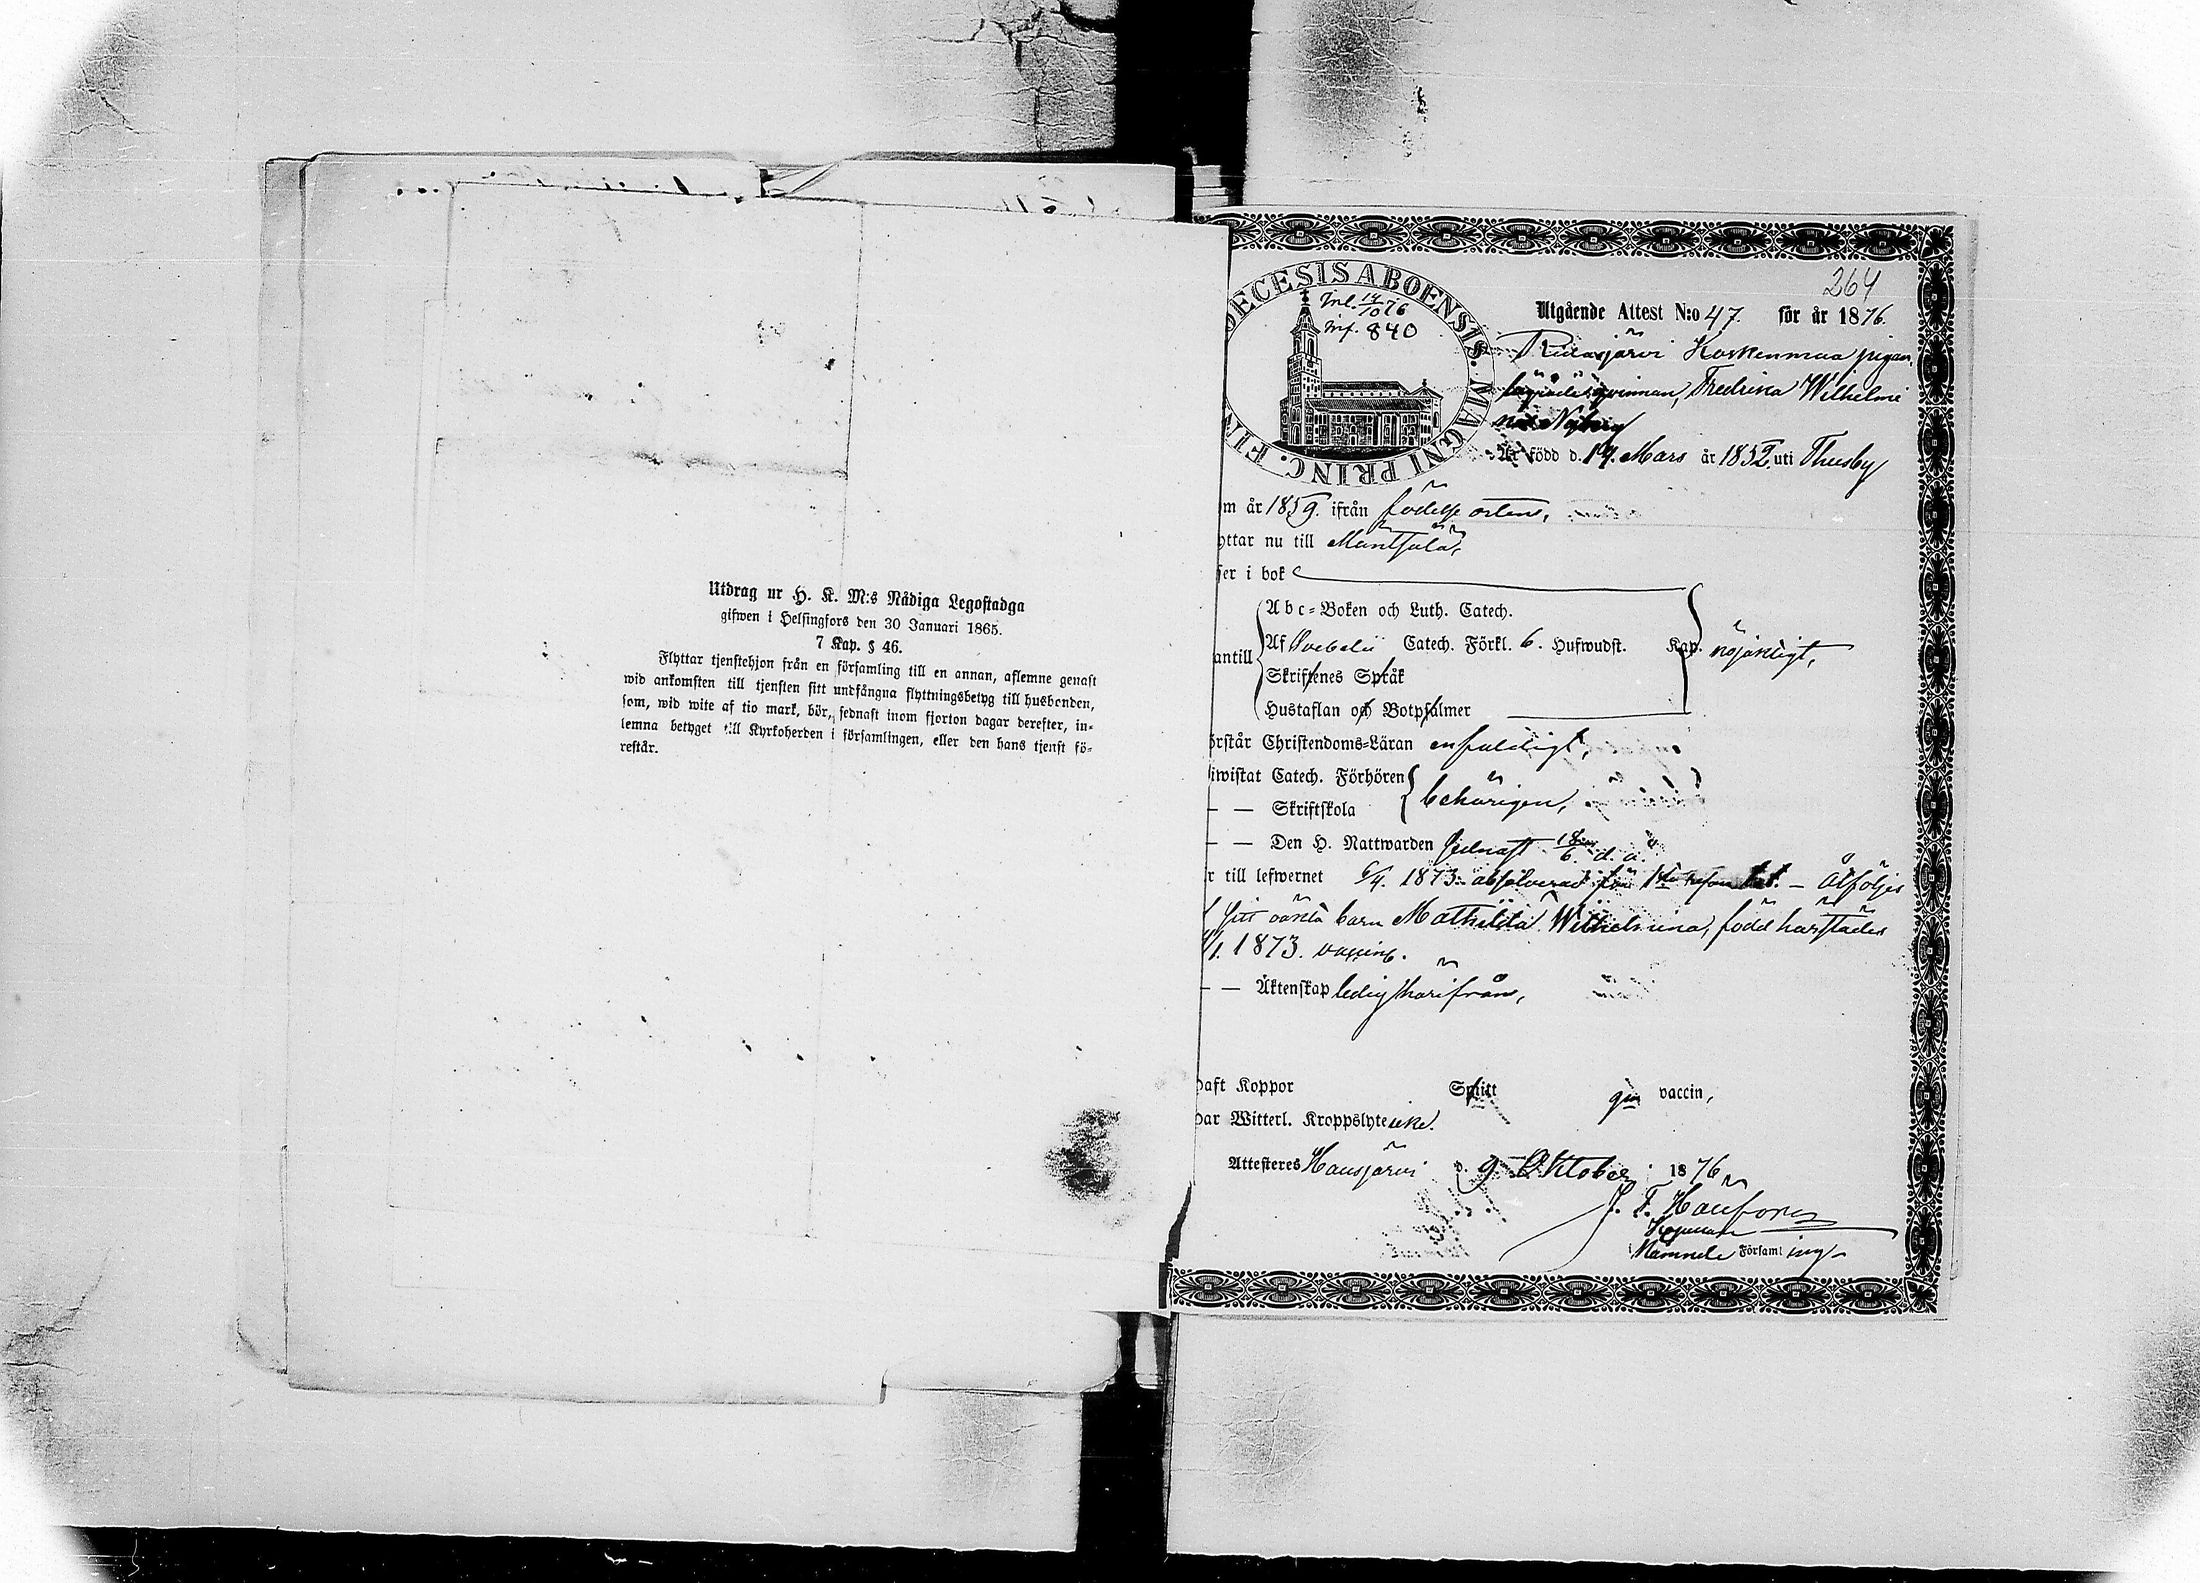 Utdrag ur H. K. M:s Nådiga Legostadga
gifwen i Helsingfors den 30 Januari 1865.
7 Kap. § 46.
Flyttar tjenstehjon från en församling till en annan, aflemne genast
wid ankomsten till tjensten sitt undfångna flyttningsbetyg till husbonden,
som, wid wite af tio mark, bör, sednast inom fjorton dagar derefter, in-
lemna betyget till Kyrkoherden i församlingen, eller den hans tjenst fö-
restår.
264
DECESIS ABOENSIS. MAGNI PRINC. FIN
Inl. 14/10 76
inf. 840
Utgående Attest N:o 47. för år 1876.
Koskenmaa pigan,
qvinnan, Fredrika Wilhelmi
na Nyberg
Är född d. 17. Mars år 1852 uti Thusby
m år 1859. ifrån födelse orten,
yttar nu till Mäntsälä,
ser i bok
Abc-Boken och Luth. Catech.
antill Af Svebelii Catech. Förkl. 6. Hufwudst. Kap. nöjaktigt,
Skriftenes Språk
Hustaflan och Botpsalmer
örstår Christendoms-Läran enfaldigt,
iwistat Catech. Förhören behörigen,
— — Skriftskola
— — Den H. Nattwarden sednast 18/6 d. å.
r till lefwernet 6/4. 1873 absolverad för 1sta resan – Åtföljes
f sitt oäkta barn Mathilda Wilhelmina, född härstädes
/1. 1873. vaccin.
— — Äktenskap ledig härifrån,
haft Koppor Smitt gm vaccin,
har Witterl. Kroppslyte icke.
Attesteres Hausjärvi d. 9. Oktober 1876
J. F.
Församling